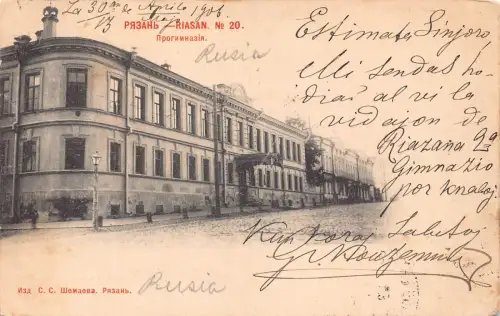 La 30an de Aprilo 1906
13 Majo
РЯЗАНЬ - RIASAN. № 20.
Прогимназія.
Rusia
Estimata Sinjoro,
Mi sendas ho-
diaŭ al vi la
vidajon de
Riazana 2a
Gimnazio
por knaboj
Kun koraj salutoj
Rusia
Изд. С. С. Шемаева. Рязань.